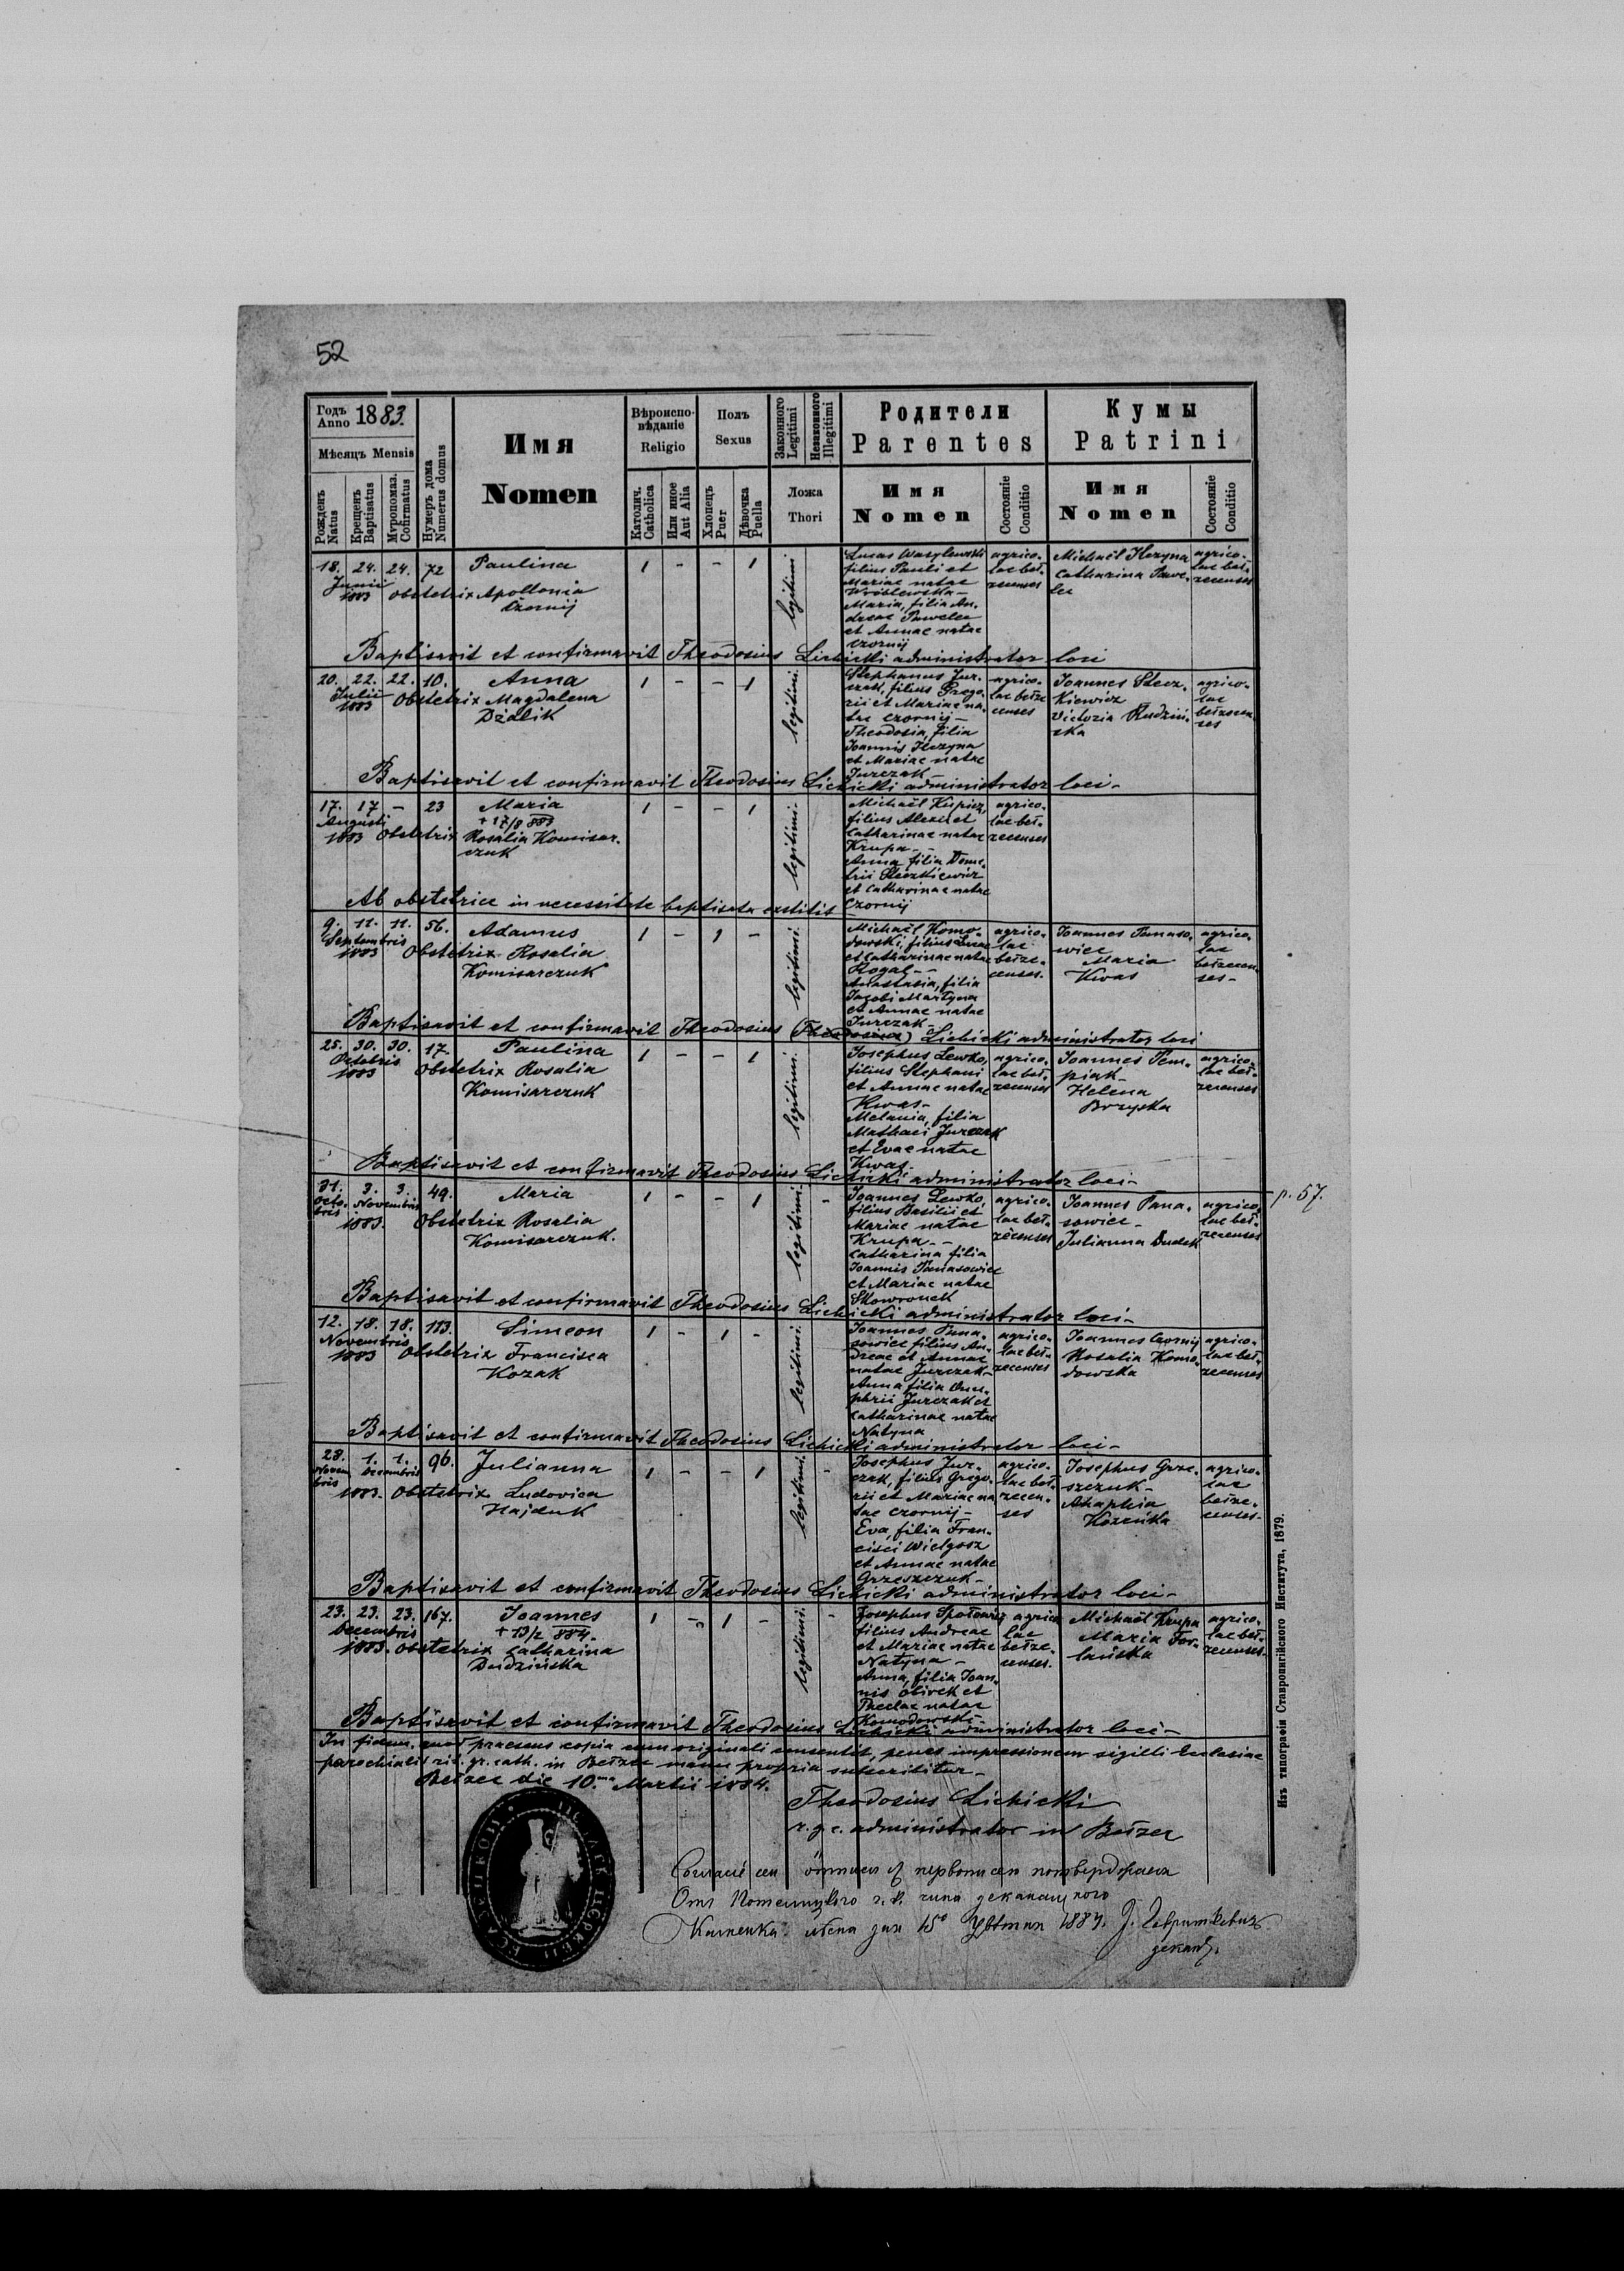 52
Годъ Anno 1883.
Мѣсяцъ Mensis
Рожденъ Natus
Крещенъ Baptisatus
Мѵропомаз. Cofirmatus
Нумеръ дома Numerus domus
Имя
Nomen
Вѣроиспо-
вѣданіе
Religio
Католич. Catholica
Или иное Aut Alia
Полъ
Sexus
Хлопецъ Puer
Дѣвочка Puella
Законного Legitimi
Незаконного Illegitimi
Ложа
Thori
Родители
Parentes
Имя
Nomen
Состояніе Conditio
Кумы
Patrini
Имя
Nomen
Состояніе Conditio
18. 24. 24. 72 Paulina 1 - - 1 legitimi.
Junii
1883 Obstetrix Apollonia
Czornij
Lucas Wasylewski
filius Pauli et
Mariae natae
Wróblewska -
Maria, filia An-
dreae Pawelec
et Annae natae
Czornij
agrico-
lae beł-
zecenses
Michaël Hezyna
Catharina Pawe-
lec
agrico-
lae beł-
zecenses
Baptisavit et confirmavit Theodosius Lichicki administrator loci
20. 22. 22. 10. Anna 1 - - 1 legitimi.
Julii
1883 Obstetrix Magdalena
Dżdlik
Stephanus Jur-
czak, filius Grego-
rii et Mariae na-
tae Czornij -
Theodosia, filia
Joannis Hezyna
et Mariae natae
Jurczak -
agrico-
lae bełze
censes
Joannes Stecz-
kiewicz
Victoria Rudziń-
ska
agrico-
lae
bełzecen-
ses
Baptisavit et confirmavit Theodosius Lichicki administrator loci -
17. 17 - 23 Maria 1 - - 1 legitimi.
Augusti + 17/8 883
1883 Obstetrix Rosalia Komisar-
czuk
Michaël Kupicz,
filius Alexii et
Catharinae natae
Krupa - -
Anna filia Deme-
trii Steczkiewicz
et Catharinae natae
Czornij
agrico-
lae beł-
zecenses
Ab obstetrice in necessitate baptisata extitit
9. 11. 11. 56. Adamus 1 - 1 - legitimi.
Septembris
1883 Obstetrix Rosalia
Komisarczuk
Michaël Komo-
dowski, filius Lucae
et Catharinae natae
Rogal - -
Anastasia, filia
Jacobi Martyna
et Annae natae
Jurczak -
agrico-
lae
bełze-
censes.
Joannes Panaso-
wiec
Maria
Kwas
agrico-
lae
bełzecen-
ses -
Baptisavit et confirmavit Theodosius (Theodosius) Lichicki administrator loci
25. 30. 30. 17. Paulina 1 - - 1 legitimi.
Octobris
1883 Obstetrix Rosalia
Komisarczuk
Josephus Lewko,
filius Stephani
et Annae natae
Kwas -
Melania, filia
Mathaei Jurczak
et Evae natae
Kwas -
agrico-
lae beł-
zecenses
Joannes Pem-
piak -
Helena
Brzyska
agrico-
lae beł-
zecenses
Baptisavit et confirmavit Theodosius Lichicki administrator loci -
31. 3. 3. 49. Maria 1 - - 1 legitimi. -
Octo-
bris Novembris
1883. Obstetrix Rosalia
Komisarczuk.
Joannes Lewko,
filius Basilii et
Mariae natae
Krupa - -
Catharina filia
Joannis Panasowiec
et Mariae natae
Skowronek
agrico-
lae beł-
zecenses
Joannes Pana-
sowiec -
Julianna Dudek
agrico-
lae beł-
zecenses
p. 57.
Baptisavit et confirmavit Theodosius Lichicki administrator loci -
12. 18. 18. 113. Simeon 1 - 1 - legitimi.
Novembris
1883 Obstetrix Francisca
Kozak
Joannes Pana-
sowiec filius An-
dreae et Annae
natae Jurczak -
Anna filia Onu-
phrii Jurczak et
Catharinae natae
Natyna
agrico-
lae beł-
zecenses
Joannes Czornij
Rosalia Komo-
dowska
agrico-
lae beł-
zecenses
Baptisavit et confirmavit Theodosius Lichicki administrator loci -
28. 1. 1. 96. Julianna 1 - - 1 legitimi. -
Novem-
bris Decembris
1883. Obstetrix Ludovica
Hajduk
Josephus Jur-
czak, filius Grego-
rii et Mariae na
tae Czornij -
Eva, filia Fran-
cisci Wielgosz
et Annae natae
Grzeszczuk -
agrico-
lae beł-
zecen-
ses
Josephus Grze-
szczuk -
Ahaphia
Kozeńka
agrico-
lae
bełze-
censes -
Baptisavit et confirmavit Theodosius Lichicki administrator loci -
23. 23. 23. 167. Joannes 1 - 1 - legitimi. -
Decembris + 13/2 884.
1883. Obstetrix Catharina
Dudzińska
Josephus Społowicz
filius Andreae
et Mariae natae
Natyna -
Anna, filia Joan-
nis Olirek et
Theclae natae
Komodowski -
agrico
lae
bełze-
censes.
Michaël Krupa
Maria For-
lańska
agrico-
lae beł-
zecenses.
Baptisavit et confirmavit Theodosius Lichicki administrator loci -
In fidem, quod praesens copia cum originali consentit, penes impressionem sigilli Ecclesiae
parochialis rit. gr. cath. in Bełzec manu propria subscribitur -
Bełzec die 10.ma Martii 1884.
Theodosius Lichicki
r. g. c. administrator in Bełzec
декан.
Изъ типографіи Ставропигійского Института, 1879.